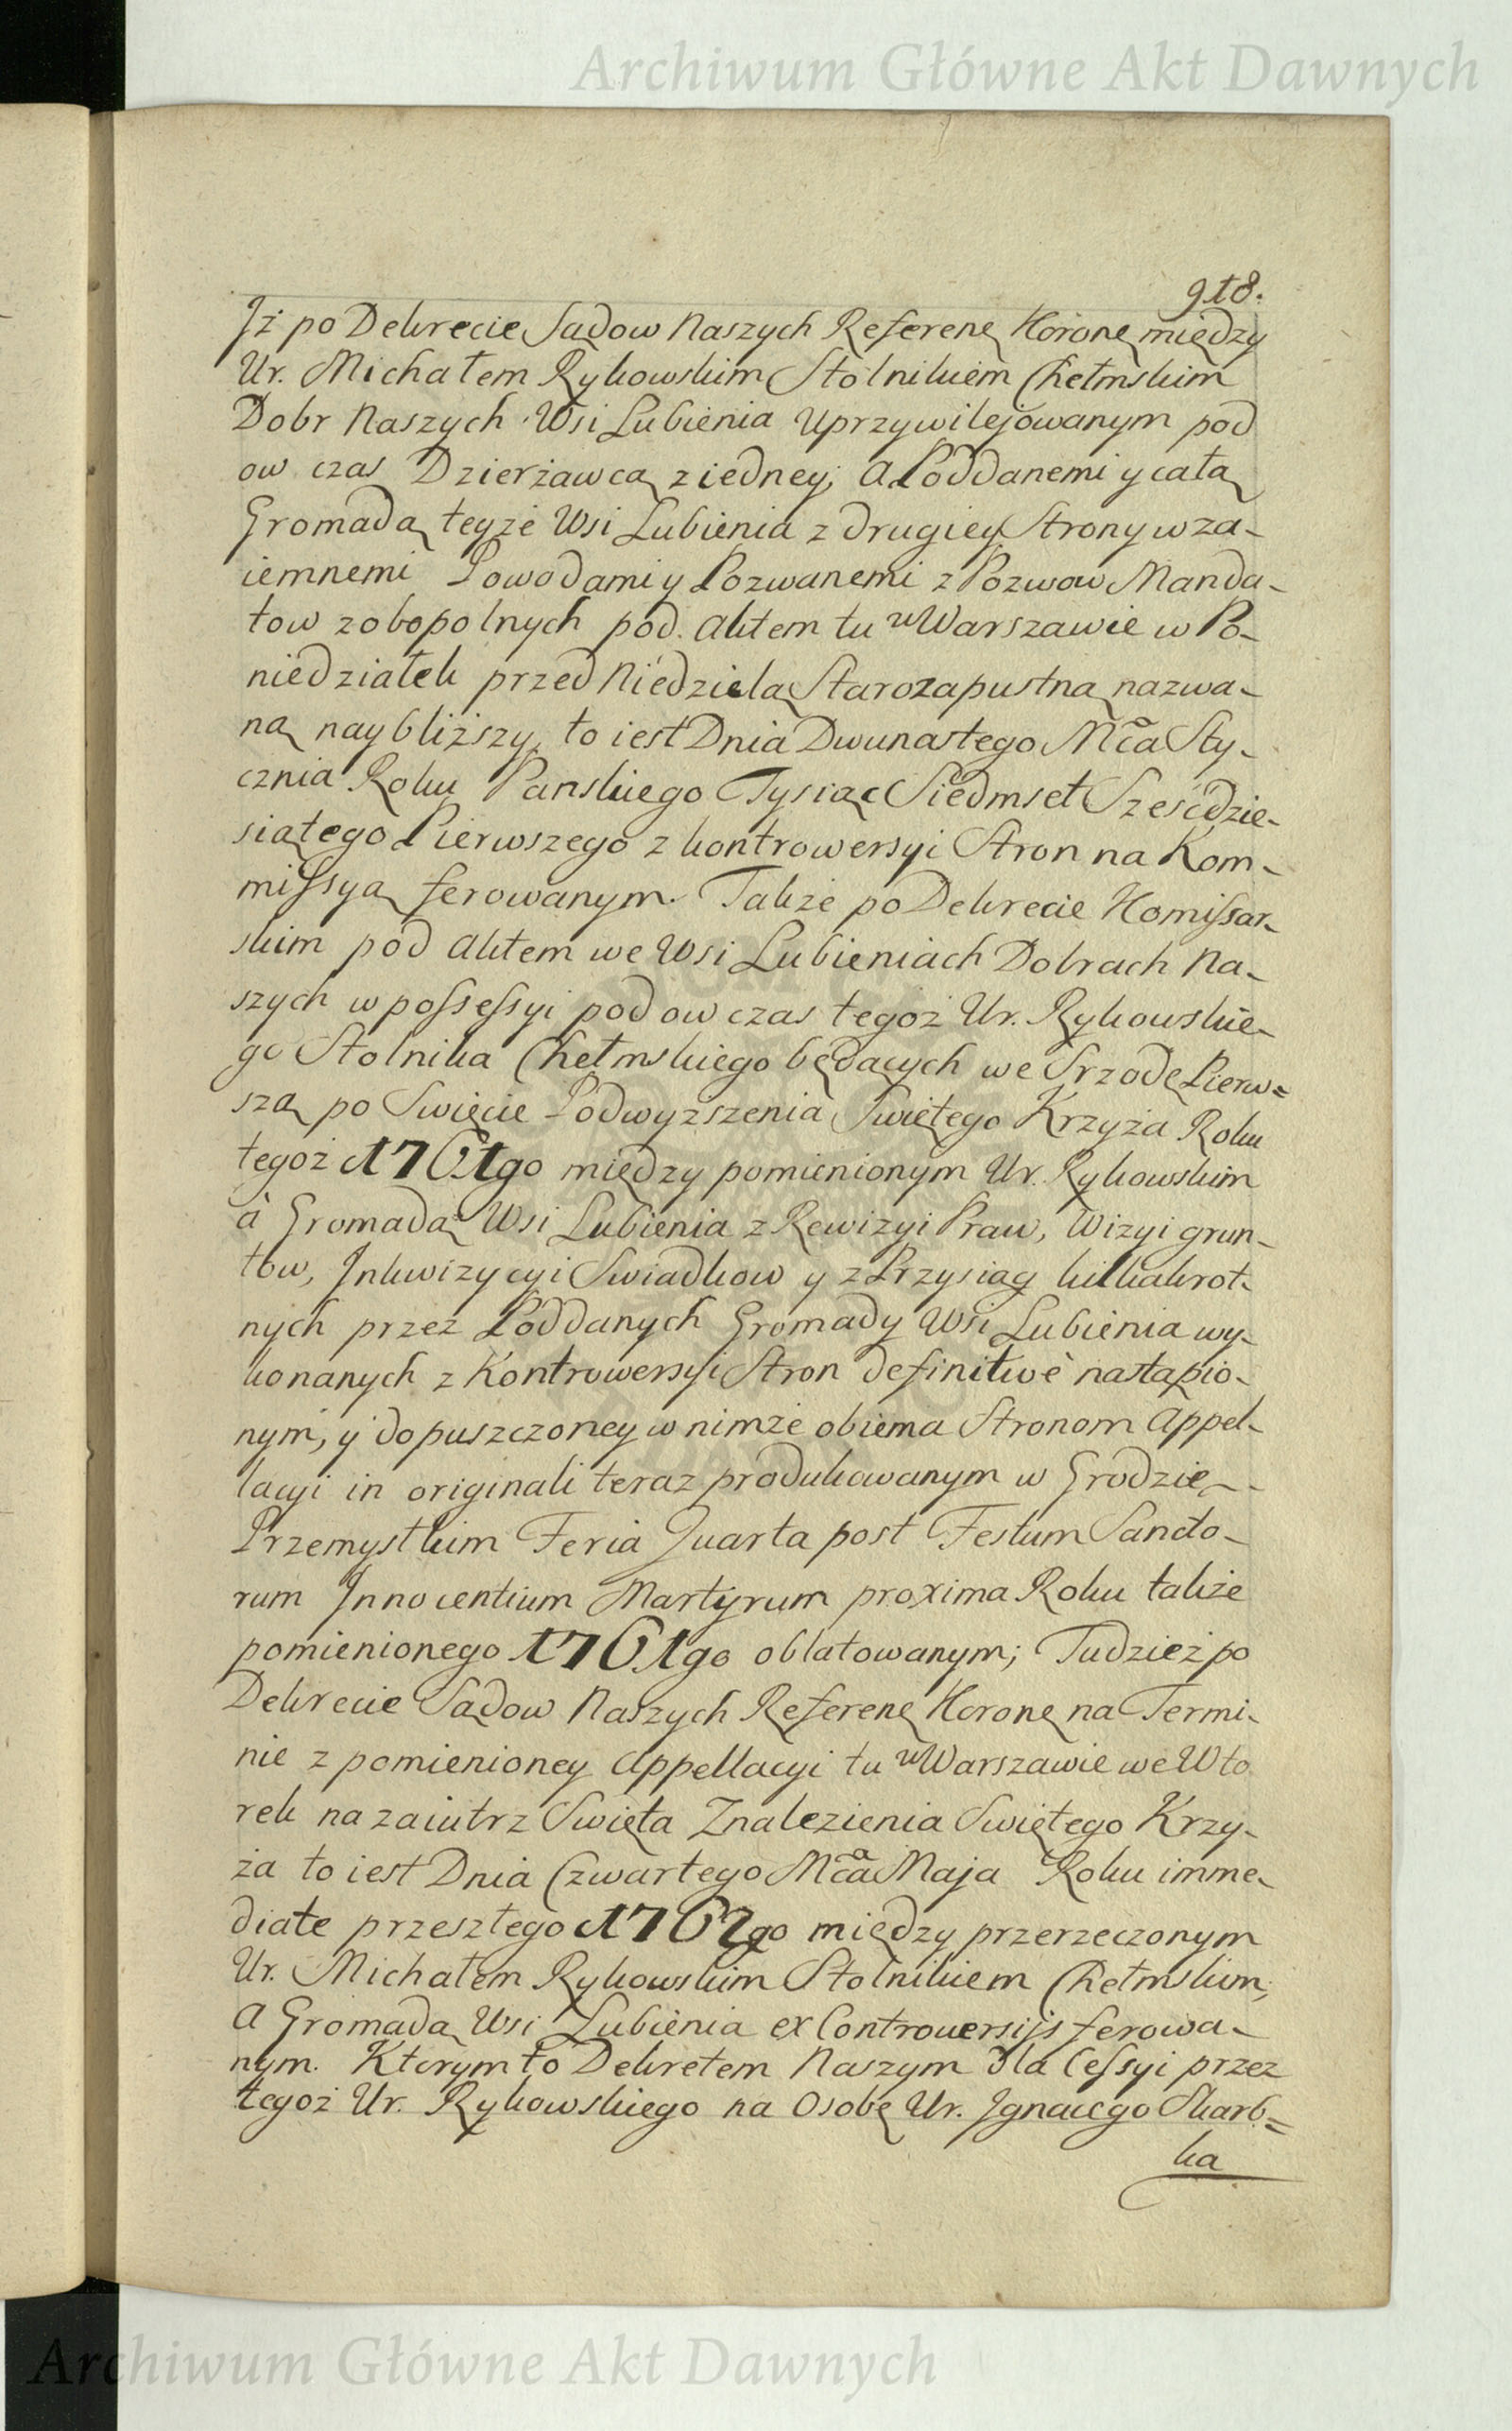 Archiwum Główne Akt Dawnych
918.
Iż po Dekrecie Sądow Naszych Referenę Koronę między
Ur. Michałem Rykowskim Stolnikiem Chełmskim
Dobr Naszych Wsi Lubienia Uprzywilejowanym pod
ow czas Dzierżawcą z iedney, a Poddanemi y całą
Gromadą teyże Wsi Lubienia z drugiey Strony wza-
iemnemi Powodami y Pozwanemi z Pozwow Manda-
tow zobopolnych pod Aktem tu w Warszawie w Po-
niedziałek przed Niedzielą Starozapustną nazwa-
ną naybliższy, to iest Dnia Dwunastego Mca Sty-
cznia Roku Panskiego Tysiąc Siedmset Sześćdzie-
siątego Pierwszego z kontrowersyi Stron na Kom-
missyą ferowanym. Także po Dekrecie Komissar-
skim pod Aktem we Wsi Lubieniach Dobrach Na-
szych w possessyi pod ow czas tegoż Ur. Rykowskie-
go Stolnika Chełmskiego będących we Srzodę Pierw=
szą po Swięcie Podwyższenia Swiętego Krzyża Roku
tegoż 1761go między pomienionym Ur. Rykowskim
à Gromadą Wsi Lubienia z Rewizyi Praw, Wizyi grun-
tow, Inkwizycyi Swiadkow y z Przysiąg kilkakrot-
nych przez Poddanych Gromady Wsi Lubienia wy-
konanych z Kontrowersyi Stron definitivè nastąpio-
nym, y dopuszczoney w nimże obiema Stronom Appel-
lacyi in originali teraz produkowanym w Grodzie
Przemyskim Feria Quarta post Festum Sancto-
rum Innocentium Martyrum proxima Roku także
pomienionego 1761go oblatowanym; Tudzież po
Dekrecie Sądow Naszych Referenę Koronę na Termi-
nie z pomienioney Appellacyi tu w Warszawie we Wto
rek nazaiutrz Swięta Znalezienia Swiętego Krzy-
ża to iest Dnia Czwartego Mca Maja Roku imme-
diate przeszłego 1762go między przerzeczonym
Ur. Michałem Rykowskim Stolnikiem Chełmskim,
a Gromadą Wsi Lubienia ex Controversijs ferowa-
nym. Ktorym to Dekretem Naszym dla Cessyi przez
tegoż Ur. Rykowskiego na Osobę Ur. Ignacego Skarb=
ka
Archiwum Główne Akt Dawnych